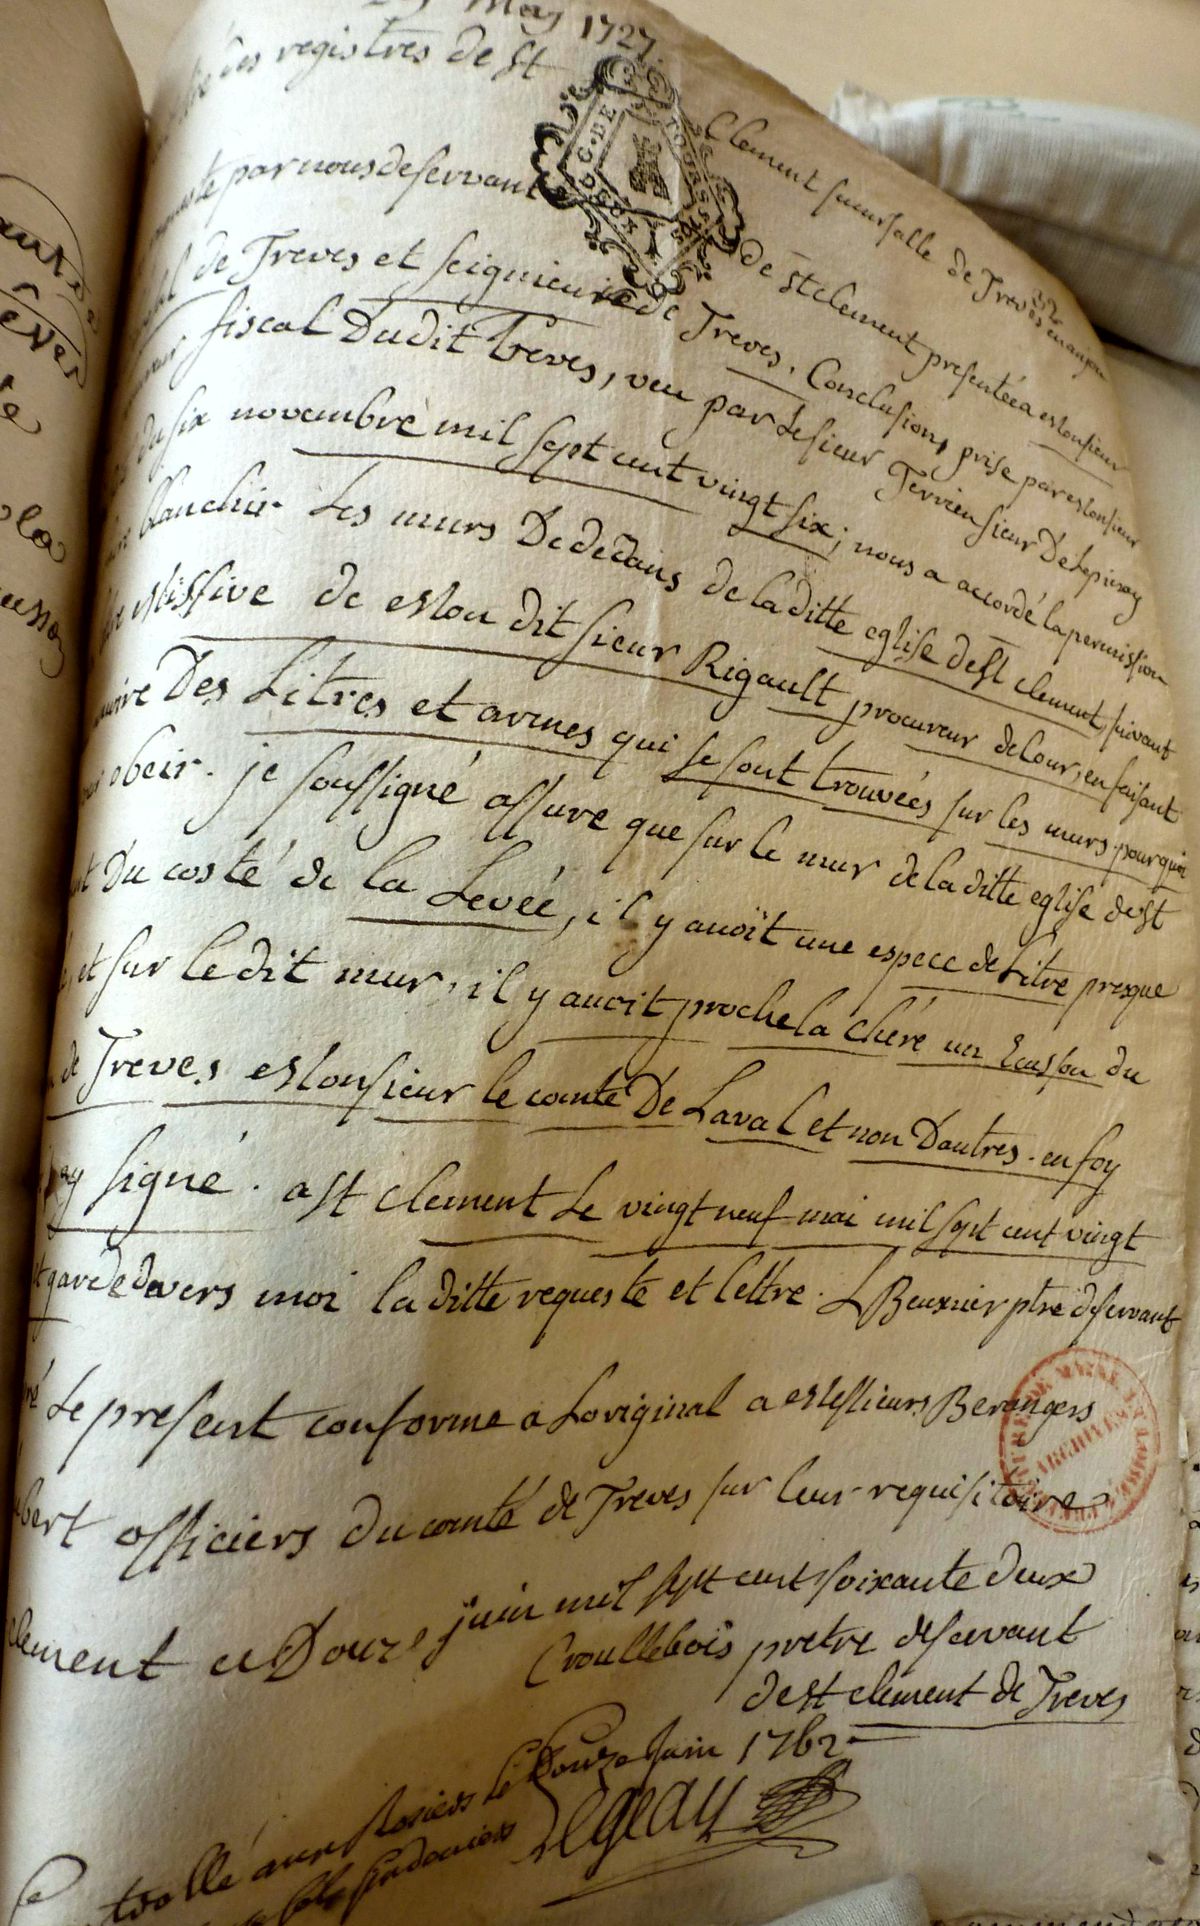 29 May 1727.
des registres de st Clement sucursalle de Treves en anjou
32
G. DE TOURS
par nous deservant de st clement presentée a monsieur
de Treves et seigneurie de Treves, Conclusions prise par monsieur
fiscal Dudit treves, veu par Le sieur Terrien sieur De Lepinay
du six novembre mil sept cent vingt six; nous a accordé la permission
blanchir Les murs De dedans de laditte eglise de st clement, suivant
missive de mon dit sieur Rigault procureur de Cour, en faisant
Des Litres et armes qui se sont trouvées sur les murs. pourquoi
obeir. je soussigné assure que sur le mur de laditte eglise de st
Du costé de la Levée, il y avoit une espece de Litre presque
et sur le dit mur, il y avoit proche la chére un Ecusson du
de Treves monsieur le comte De Laval et non Dautres. en foy
ay signé. a st clement Le vingt neuf mai mil sept cent vingt
garde devers moi laditte requeste et lettre. L Beusnier ptre deservant
Le present conforme a Loriginal a messieurs Berangers
officiers du comté de Treves sur leur requisitoire
clement ce Douze juin mil sept cent soixante deux
Croullebois pretre deservant
de st clement de Treves
aux Rosiers le Douze Juin 1762
Legeay
ARCHIVES
PREFECTURE DE MAINE ET LOIRE